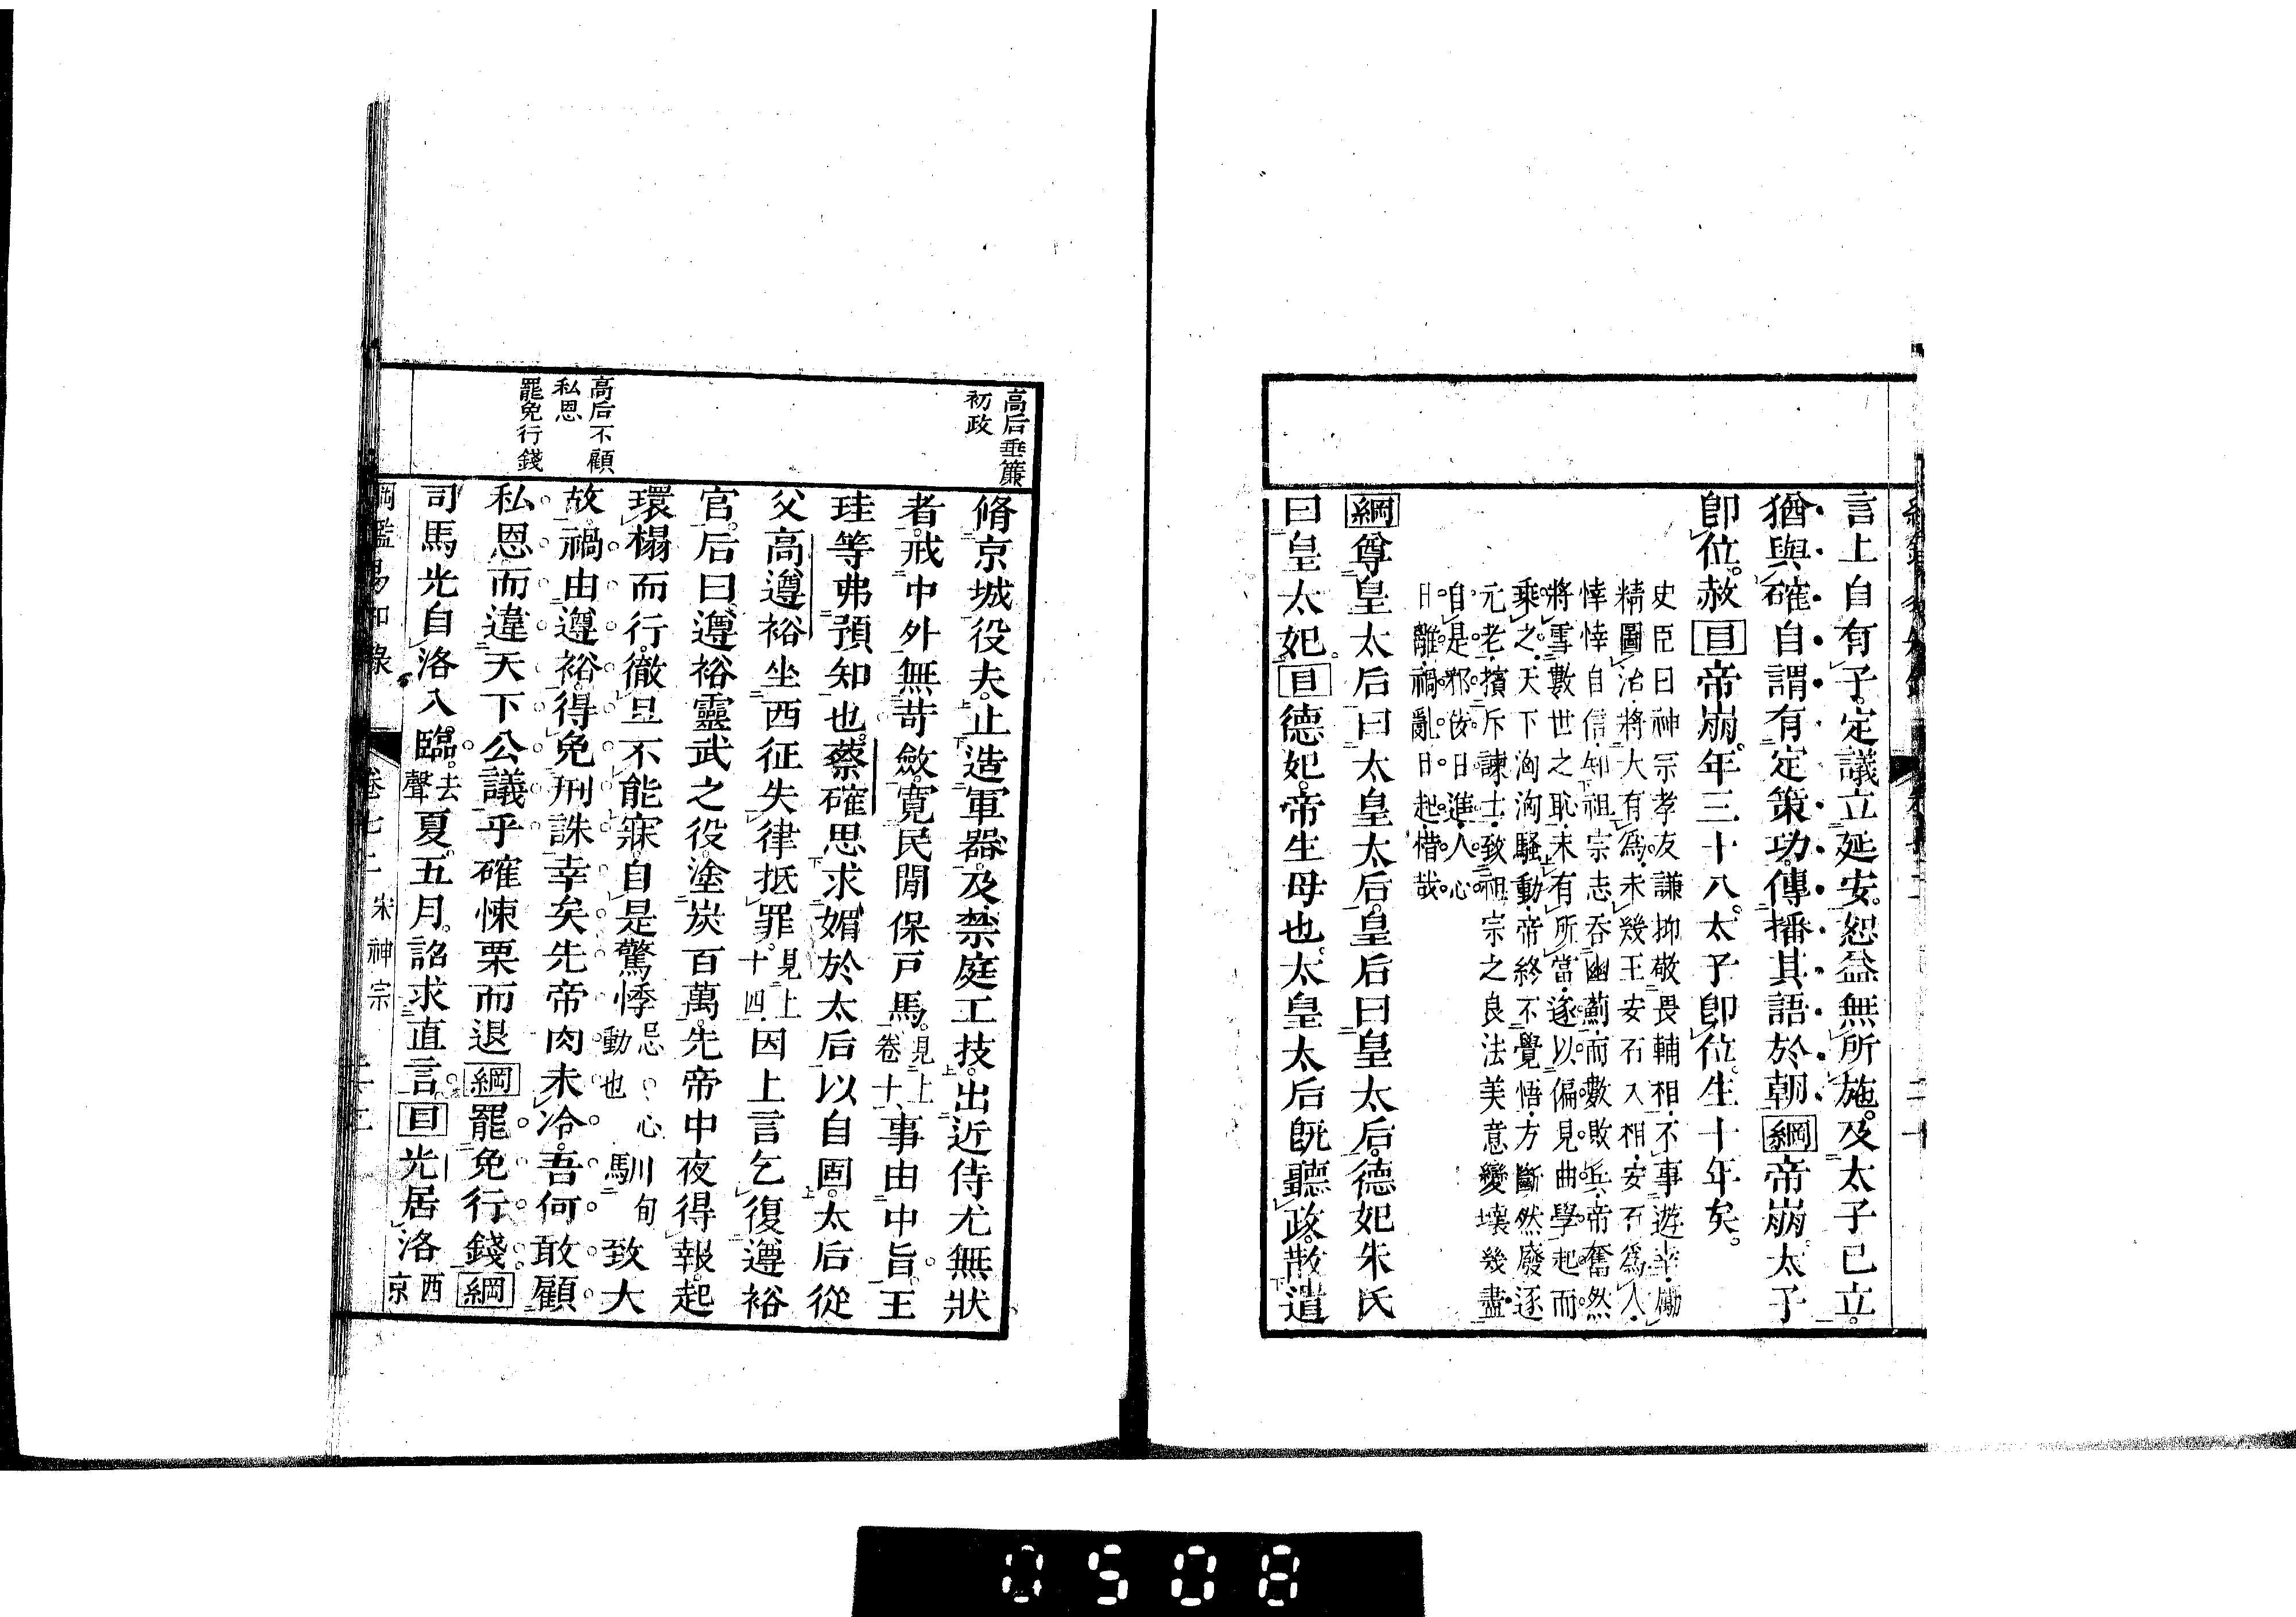 言上自有子。定議立延安。恕益無所施。及太子已立。
猶與確自謂有定策功。傳播其語於朝綱帝崩。太子
卽位。赦目帝崩。年三十八。太子卽位。生十年矣。
史臣曰神宗孝友謙抑敬畏輔相不事遊幸勵
精圖治將大有為未幾王安石入相安石為人
悻悻自信知祖宗志吞幽薊而數敗兵帝奮然
將雪數世之恥未有所當遂以偏見曲學起而
乘之天下洶洶騷動帝終不覺悟方斷然廢逐
元老擯斥諫士致祖宗之良法美意變壞幾盡
自是邪佞日進人心
日離禍亂日起惜哉
綱尊皇太后曰太皇太后。皇后曰皇太后。德妃朱氏
曰皇太妃。目德妃。帝生母也。太皇太后旣聽政。散遣
高后垂簾
初政
脩京城役夫。止造軍器。及禁庭工技。出近侍尤無狀
者。戒中外無苛斂。寬民閒保戶馬。見上卷十、事由中旨。王
珪等弗預知也。蔡確思求媚於太后以自固。太后從
父高遵裕坐西征失律抵罪。見上十四因上言乞復遵裕
官。后曰遵裕靈武之役。塗炭百萬。先帝中夜得報。起
環榻而行。徹旦不能寐。自是驚悸忌心動也馴致大
高后不顧
私恩
故。禍由遵裕。得免刑誅幸矣先帝肉未冷。吾何敢顧
罷免行錢
私恩而違天下公議乎確悚栗而退綱罷免行錢。綱
司馬光自洛入臨。去聲夏。五月。詔求直言。目光居洛西京
綱鑑易知錄 卷七二 宋神宗